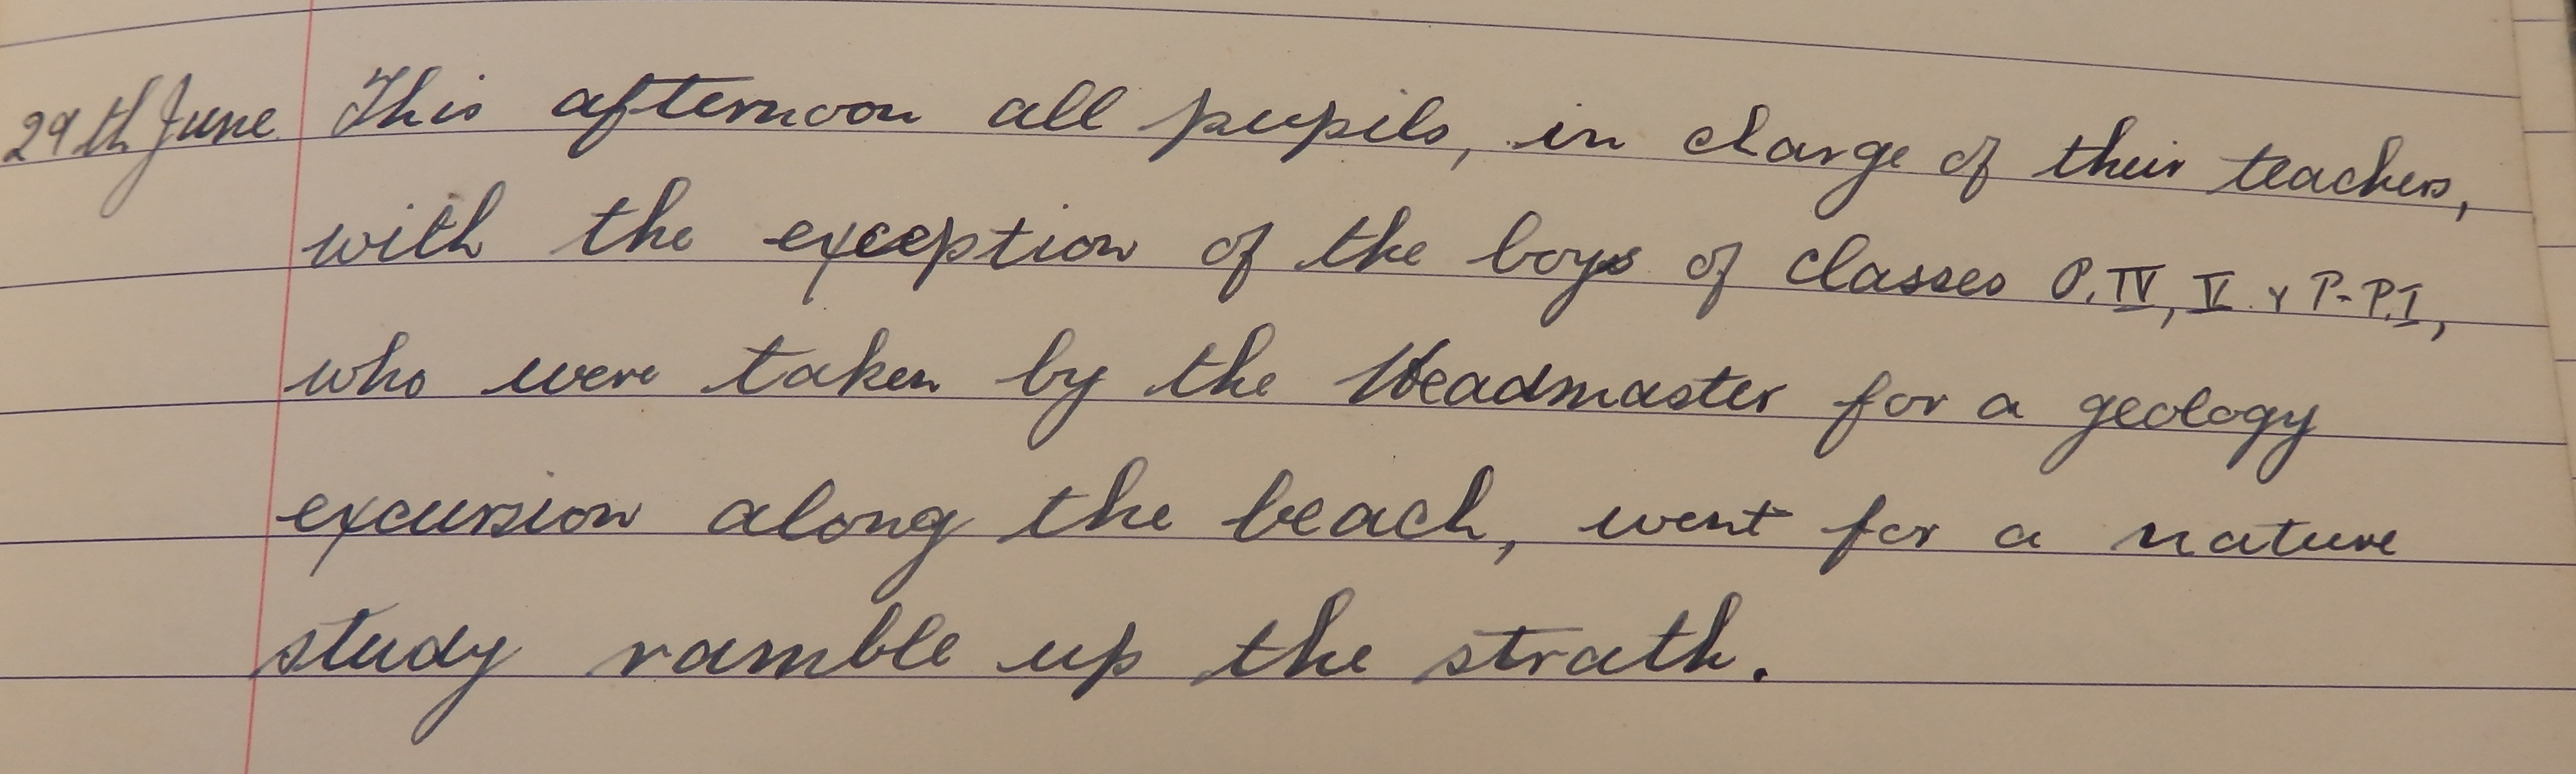 29th June This afternoon all pupils, in charge of their teachers,
with the exception of the boys of classes P.IV, V & P-P.I,
who were taken by the Headmaster for a geology
excursion along the beach, went for a nature
study ramble up the strath.